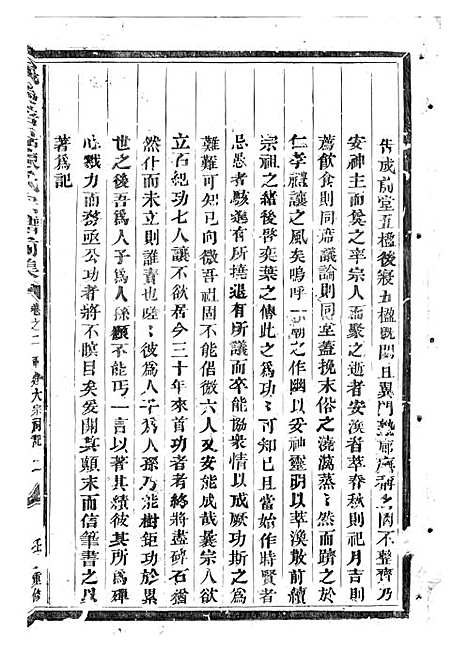 告成前堂五楹後寢五楹旣閎且異門塾廊廡靡不整齊乃
安神主而奠之率宗人而聚之逝者安渙者萃春秋則祀月吉則
薦飲食則同席議論則同室蓋挽末俗之澆漓蒸然而躋之於
仁孝禮讓之風矣嗚呼一廟之作幽以安神靈明以萃渙散前續
宗祖之緒後啓奕葉之傳此之爲功何如哉然當始作時賢者
忌愚者駭適有所撓退有所議而卒能協衆情以成厥功斯之
難難可知已向微吾祖固不能倡微六人又安能成哉彙宗人欲
立石紀功七人讓不欲居今三十年來首功者者終將盡碑石猶
然仆而未立則誰責也嗟嗟彼爲人子爲人孫乃能樹鉅功於累
世之後吾爲人子爲人孫顧不能丐一言以著其績彼其所爲殫
心戮力而務亟公功者將不瞑目矣爰闢其顛末而信筆書之以
著爲記
卷之一
大宗祠記 二
重修